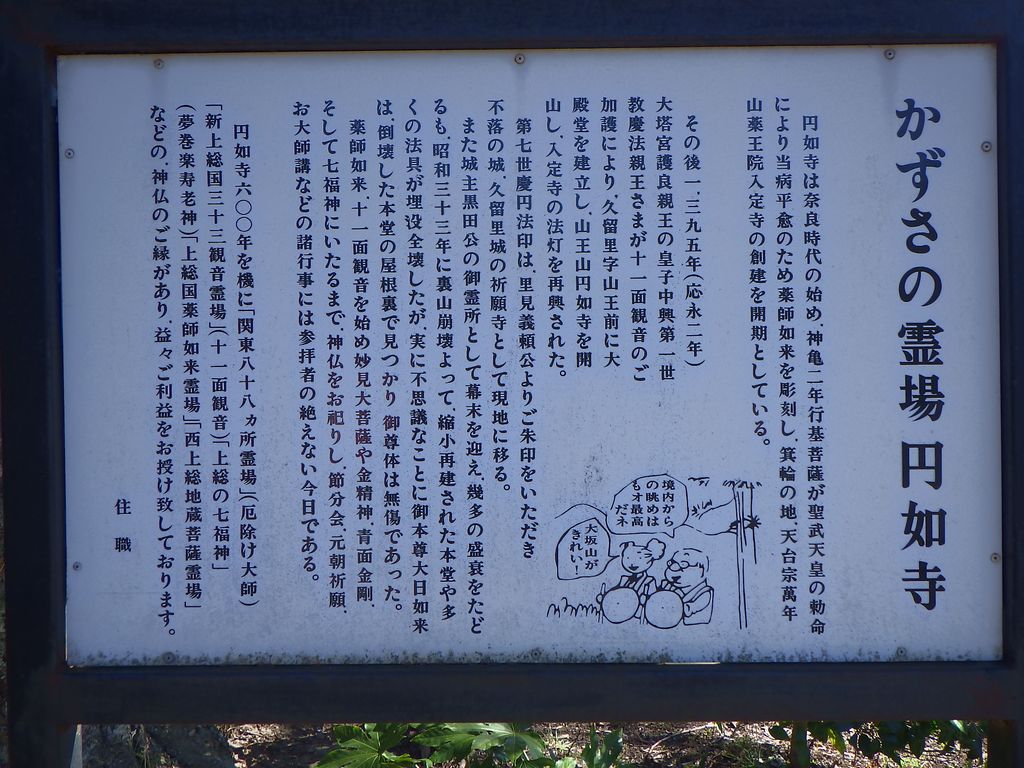 かずさの霊場 円如寺
円如寺は奈良時代の始め、神亀二年行基菩薩が聖武天皇の勅命
により当病平愈のため薬師如来を彫刻し、箕輪の地、天台宗萬年
山薬王院入定寺の創建を開期としている。
その後一、三九五年(応永二年)
大塔宮護良親王の皇子中興第一世
教慶法親王さまが十一面観音のご
加護により、久留里字山王前に大
殿堂を建立し、山王山円如寺を開
山し、入定寺の法灯を再興された。
第七世慶円法印は、里見義頼公よりご朱印をいただき
不落の城、久留里城の祈願寺として現地に移る。
また城主黒田公の御霊所として幕末を迎え、幾多の盛衰をたど
るも、昭和三十三年に裏山崩壊よって、縮小再建された本堂や多
くの法具が埋没全壊したが、実に不思議なことに御本尊大日如来
は、倒壊した本堂の屋根裏で見つかり 御尊体は無傷であった。
薬師如来、十一面観音を始め妙見大菩薩や金精神、青面金剛、
そして七福神にいたるまで、神仏をお祀りし、節分会、元朝祈願、
お大師講などの諸行事には参拝者の絶えない今日である。
円如寺六〇〇年を機に「関東八十八ヵ所霊場」(厄除け大師)
「新上総国三十三観音霊場」(十一面観音)「上総の七福神」
(夢巻楽寿老神)「上総国薬師如来霊場」「西上総地蔵菩薩霊場」
などの、神仏のご縁があり、益々ご利益をお授け致しております。
住職
境内から
の眺めは
もオ最高
だネ
大坂山が
きれい!